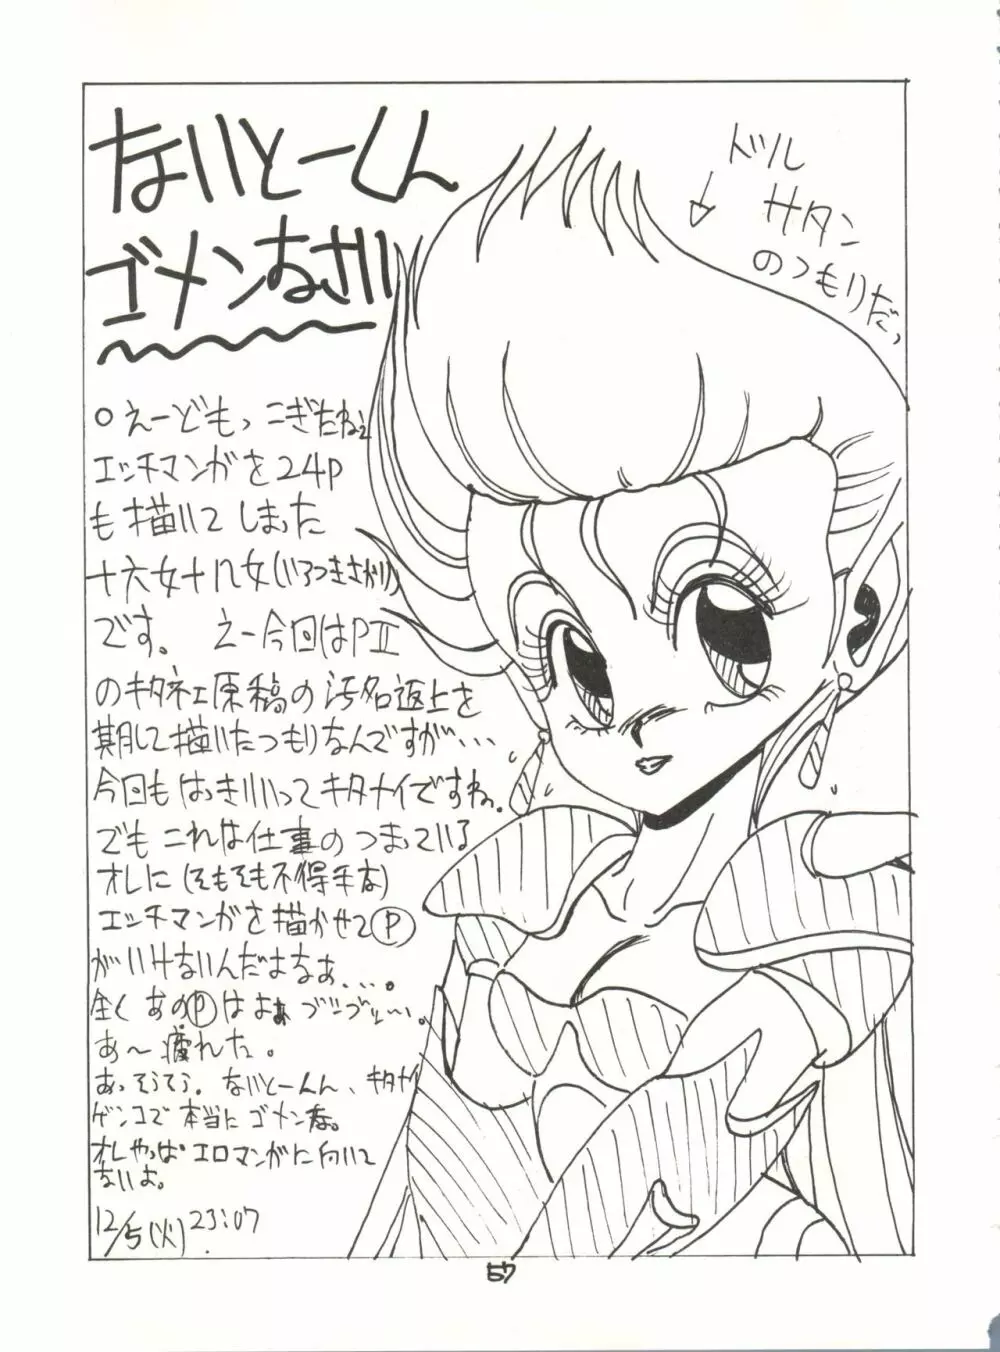 ないとーくん
ゴメンなさい
ドツル
サタン
のつもりだっ
○えーどもっ こぎたねェ
エッチマンガを24P
も描いて しまった
十六女十八女(いろつきさがり)
です。 えー今回はPⅡ
のキタネェ原稿の汚名返上を
期して描いたつもりなんですが・・・
今回も はっきりいって キタナイですね。
でも これは仕事の つまっている
オレに (そもそも不得手な)
エッチマンガを描かせたⓅ
がいけないんだよなぁ・・・。
全く あのⓅはよぉ ブツブツ・・・。
あ〜 疲れた。
あっ そうそう。 ないとーくん、キタナイ
ゲンコで 本当に ゴメンな。
オレやっぱ エロマンガに向いて
ないよ。
12/5(火) 23:07
57